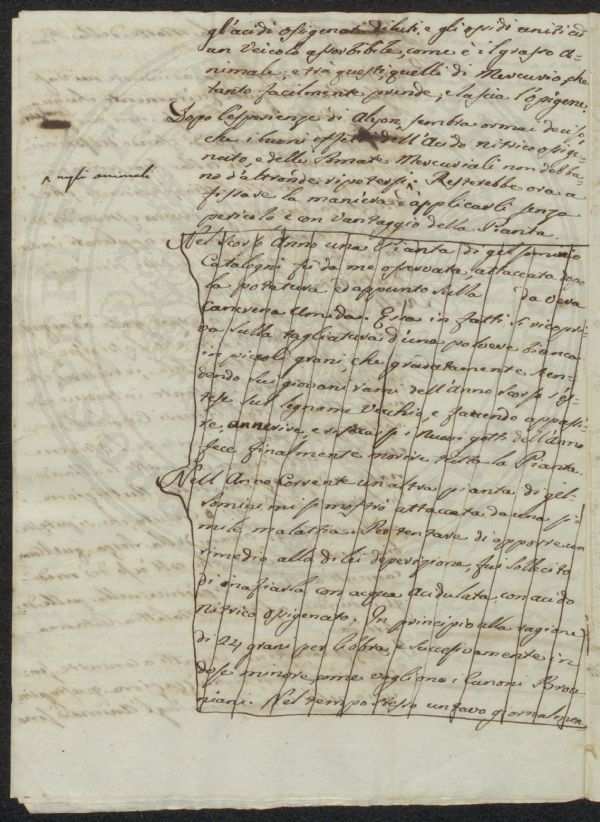 gl'acidi ossigenati diluti, e gli ossidi uniti ad
un Veicolo assorbibile, come è il grasso a-
nimale; e trà questi quelli di Mercurio, che
tanto facilmente prende, e lascia l'ossigene.
Dopo l'esperienze di Alyon, sembra ormai deciso,
che i buoni effetti dell'Acido nitrico ossige-
nato, e delle Pomate Mercuriali non debba-
negli animali
no d'altronde ripetersi. Resterebbe ora a
fissare la maniera d'applicarli senza
pericolo e con vantaggio della Pianta.
Nel scorso Anno una Pianta di gelsomino
Catalogni fù da me osservata attaccata dopo
la potatura, ed appunto sulla da Vera
Cancrena Umida. Essa in fatti si ricopri-
va sulla tagliatura d'una polvere bianca
in piccoli grani, che gradatamente sten-
dendo sui giovani rami dell'Anno scorso s'es-
tese sul legname Vecchio, e facendo appassi-
re, annerire, e i nuovi getti dell'Anno
fece finalmente morire tutta la Pianta.
Nell'Anno Corrente un'altra pianta di gel-
somini mi si mostrò attaccata da una si-
mile malattia. Per tentare di opporre un
rimedio alla di lei deperizione, fui sollecito
di inafiarla con acqua acidulata con acido
Nitrico ossigenato. In principio alla ragione
di 24 grani per libbra, e successivamente in
dose minore come vogliono i Canoni Brow-
niani. Nel tempo stesso untavo giornalmen